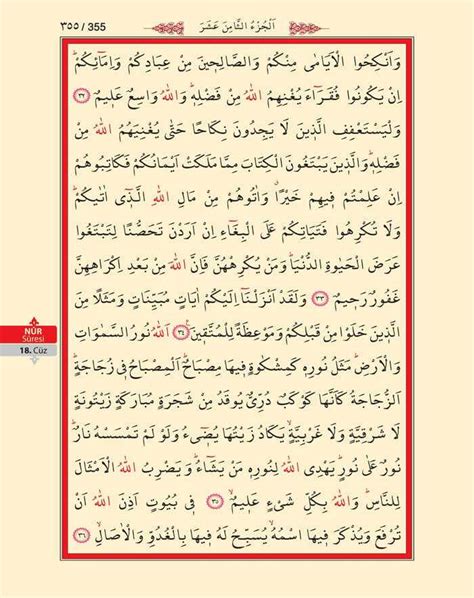 ٣٥٥ / 355
اَلْجُزْءُ الثَّامِنَ عَشَرَ
وَاَنْكِحُوا الْاَيَامٰى مِنْكُمْ وَالصَّالِحِينَ مِنْ عِبَادِكُمْ وَاِمَٓائِكُمْۜ
اِنْ يَكُونُوا فُقَرَٓاءَ يُغْنِهِمُ اللّٰهُ مِنْ فَضْلِهِۜ وَاللّٰهُ وَاسِعٌ عَلِيمٌ ﴿٣٢﴾
وَلْيَسْتَعْفِفِ الَّذِينَ لَا يَجِدُونَ نِكَاحًا حَتّٰى يُغْنِيَهُمُ اللّٰهُ مِنْ
فَضْلِهِۜ وَالَّذِينَ يَبْتَغُونَ الْكِتَابَ مِمَّا مَلَكَتْ اَيْمَانُكُمْ فَكَاتِبُوهُمْ
اِنْ عَلِمْتُمْ فِيهِمْ خَيْرًاۗ وَاٰتُوهُمْ مِنْ مَالِ اللّٰهِ الَّذِٓي اٰتٰيكُمْۜ
وَلَا تُكْرِهُوا فَتَيَاتِكُمْ عَلَى الْبِغَٓاءِ اِنْ اَرَدْنَ تَحَصُّنًا لِتَبْتَغُوا
عَرَضَ الْحَيٰوةِ الدُّنْيَاۜ وَمَنْ يُكْرِهْهُنَّ فَاِنَّ اللّٰهَ مِنْ بَعْدِ اِكْرَاهِهِنَّ
غَفُورٌ رَحِيمٌ ﴿٣٣﴾ وَلَقَدْ اَنْزَلْنَٓا اِلَيْكُمْ اٰيَاتٍ مُبَيِّنَاتٍ وَمَثَلًا مِنَ
الَّذِينَ خَلَوْا مِنْ قَبْلِكُمْ وَمَوْعِظَةً لِلْمُتَّقِينَ۟ ﴿٣٤﴾ اَللّٰهُ نُورُ السَّمٰوَاتِ
وَالْاَرْضِۜ مَثَلُ نُورِهِ كَمِشْكٰوةٍ فِيهَا مِصْبَاحٌۜ اَلْمِصْبَاحُ فِي زُجَاجَةٍۜ
اَلزُّجَاجَةُ كَاَنَّهَا كَوْكَبٌ دُرِّيٌّ يُوقَدُ مِنْ شَجَرَةٍ مُبَارَكَةٍ زَيْتُونَةٍ
لَا شَرْقِيَّةٍ وَلَا غَرْبِيَّةٍۙ يَكَادُ زَيْتُهَا يُضِٓيءُ وَلَوْ لَمْ تَمْسَسْهُ نَارٌۜ
نُورٌ عَلٰى نُورٍۜ يَهْدِي اللّٰهُ لِنُورِهِ مَنْ يَشَٓاءُۜ وَيَضْرِبُ اللّٰهُ الْاَمْثَالَ
لِلنَّاسِۜ وَاللّٰهُ بِكُلِّ شَيْءٍ عَلِيمٌۙ ﴿٣٥﴾ فِي بُيُوتٍ اَذِنَ اللّٰهُ اَنْ
تُرْفَعَ وَيُذْكَرَ فِيهَا اسْمُهُۙ يُسَبِّحُ لَهُ فِيهَا بِالْغُدُوِّ وَالْاٰصَالِۙ ﴿٣٦﴾
NÛR
Sûresi
18. Cüz